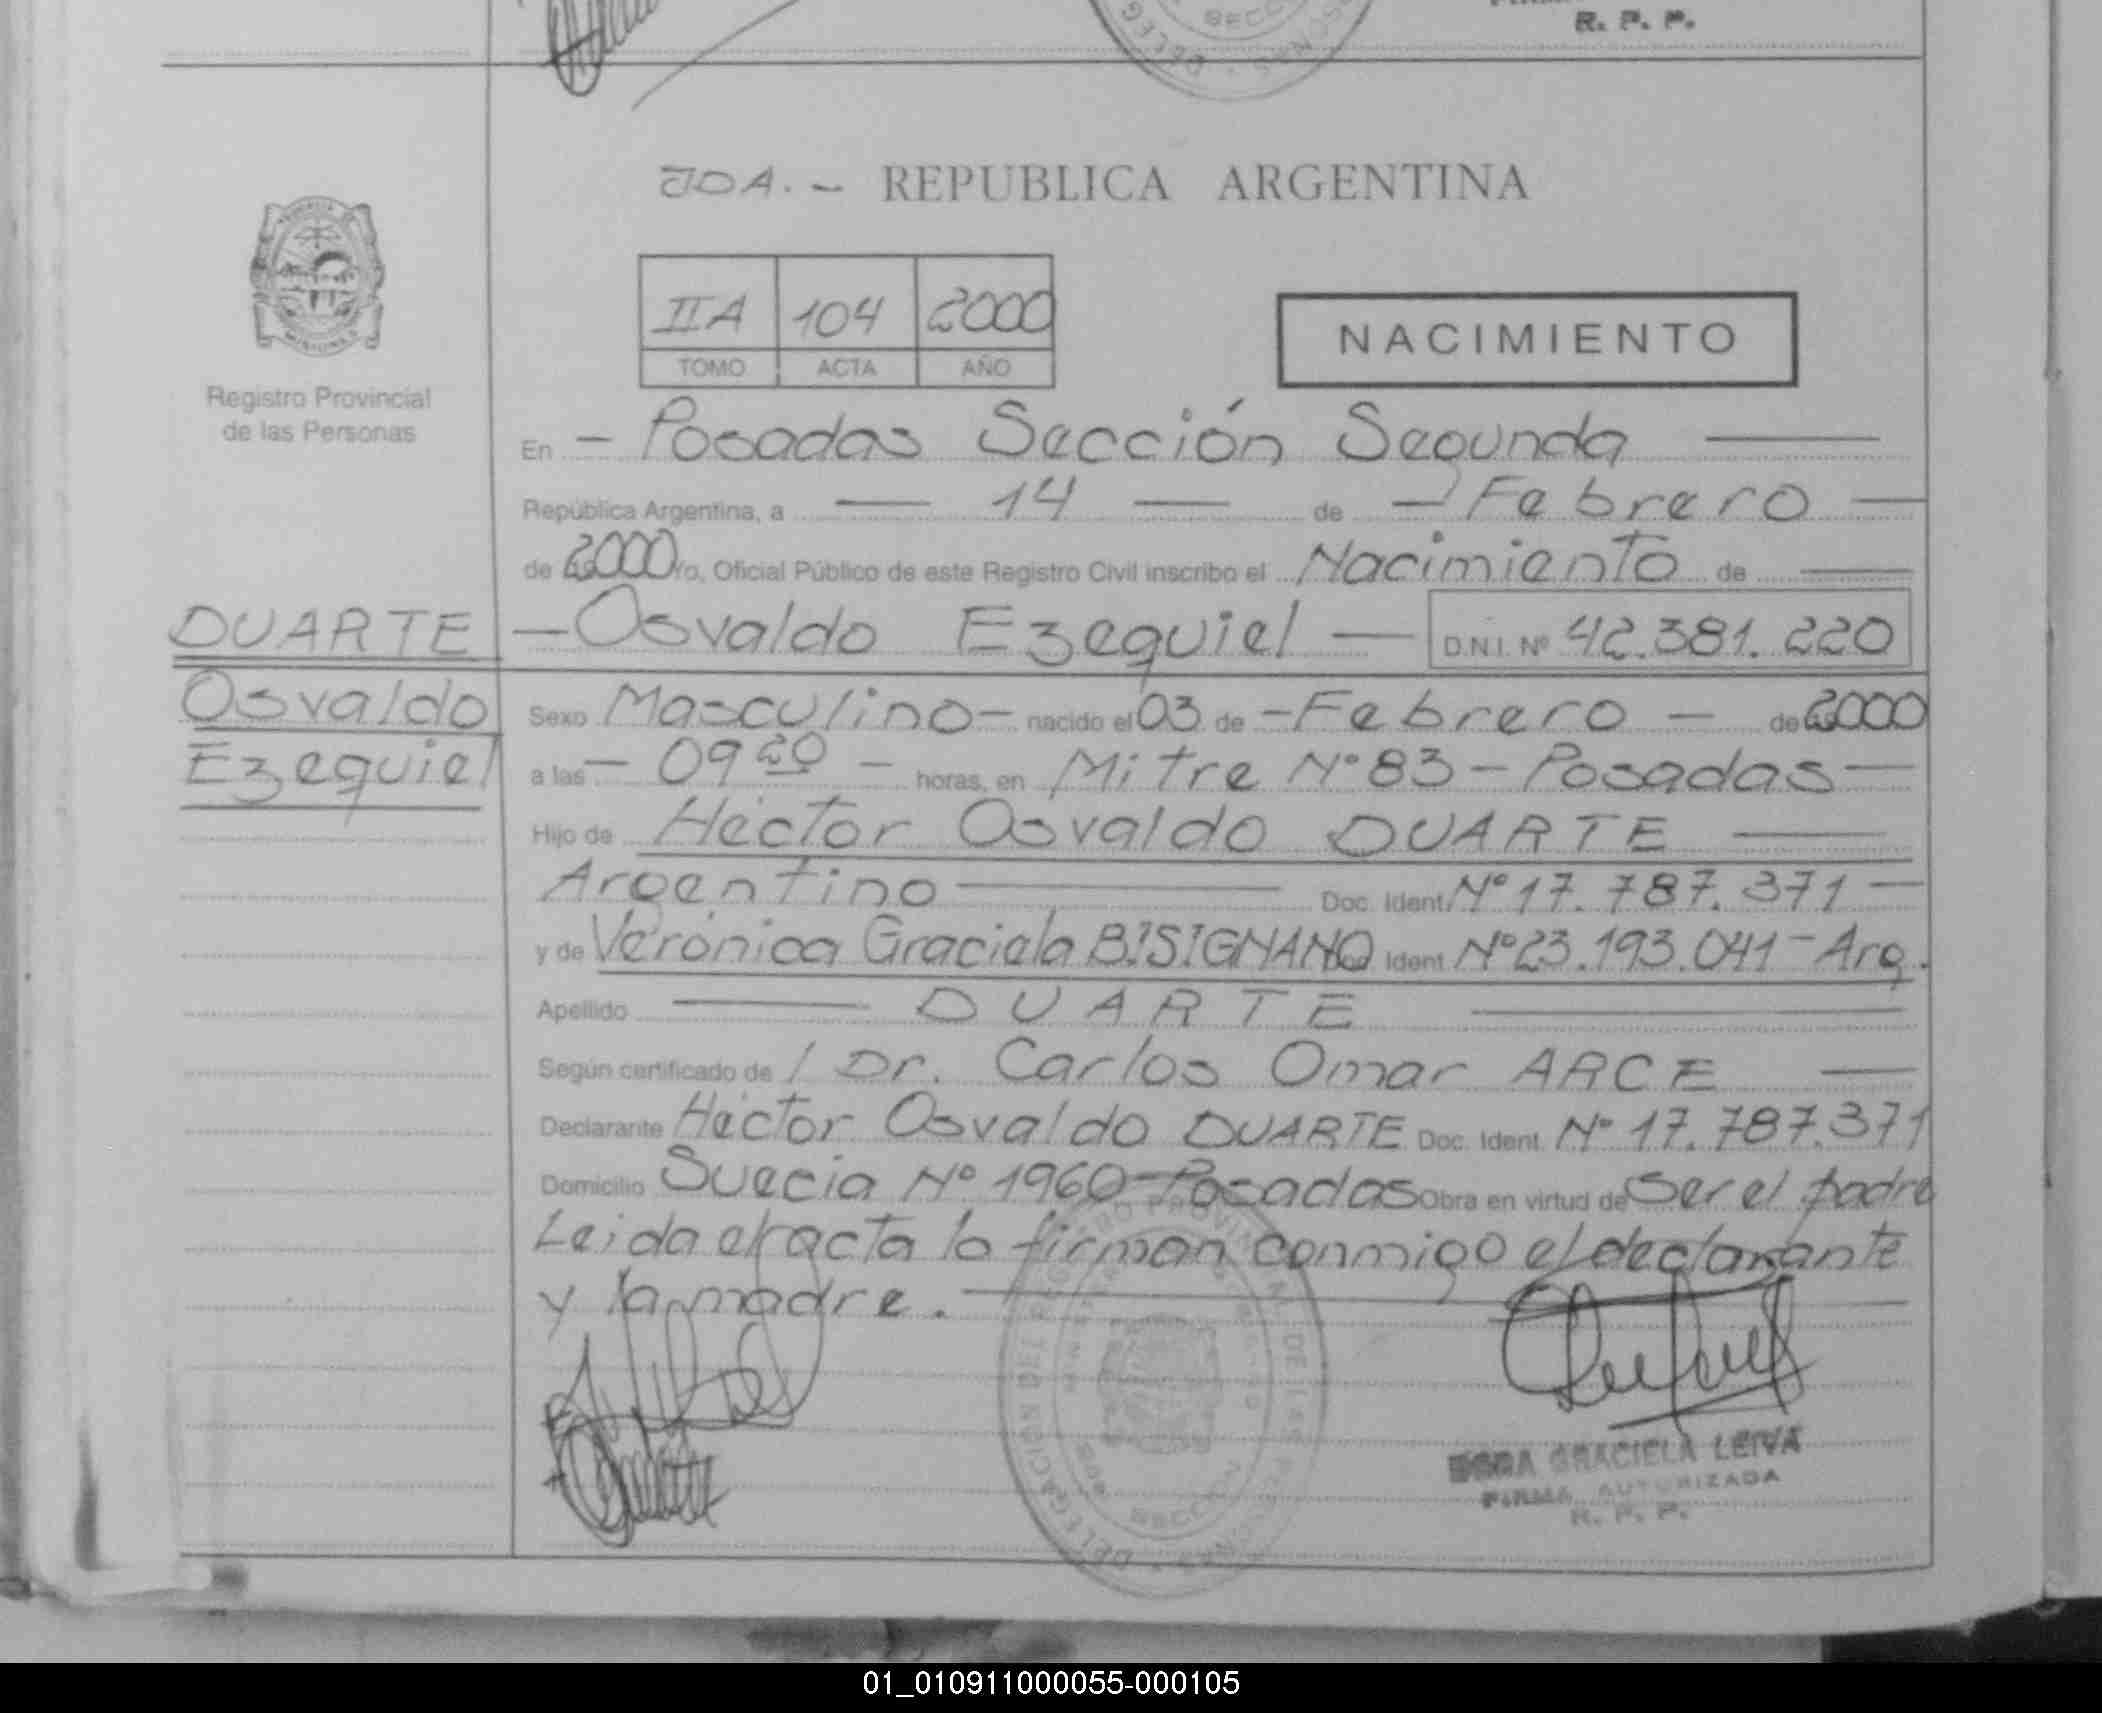 R. P. P.
JDA. - REPUBLICA ARGENTINA
IIA 104 2000
TOMO ACTA AÑO
NACIMIENTO
Registro Provincial
de las Personas
En - Posadas Sección Segunda
República Argentina, a 14 de - Febrero
de 2000 Yo, Oficial Público de este Registro Civil inscribo el Nacimiento de
DUARTE
Osvaldo
Ezequiel
- Osvaldo Ezequiel - D.N.I. Nº 42.381.220
Sexo Masculino - nacido el 03 de - Febrero - de 2000
a las - 09 20 - horas, en Mitre Nº 83 - Posadas
Hijo de Héctor Osvaldo DUARTE
Argentino Doc. Ident. Nº 17.787.371
y de Verónica Graciela BISIGNANO Doc. Ident Nº 23.193.041 - Arg.
Apellido DUARTE
Según certificado de / Dr. Carlos Omar ARCE
Declarante Héctor Osvaldo DUARTE Doc. Ident. Nº 17.787.371
Domicilio Suecia Nº 1960 - Posadas Obra en virtud de Ser el padre
Leida el acta la firman conmigo el declarante
y la madre.
DELEGACION DEL REGISTRO PROVINCIAL DE LAS PERSONAS
SECCION
GRACIELA LEIVA
FIRMA AUTORIZADA
R. P. P.
01_010911000055-000105